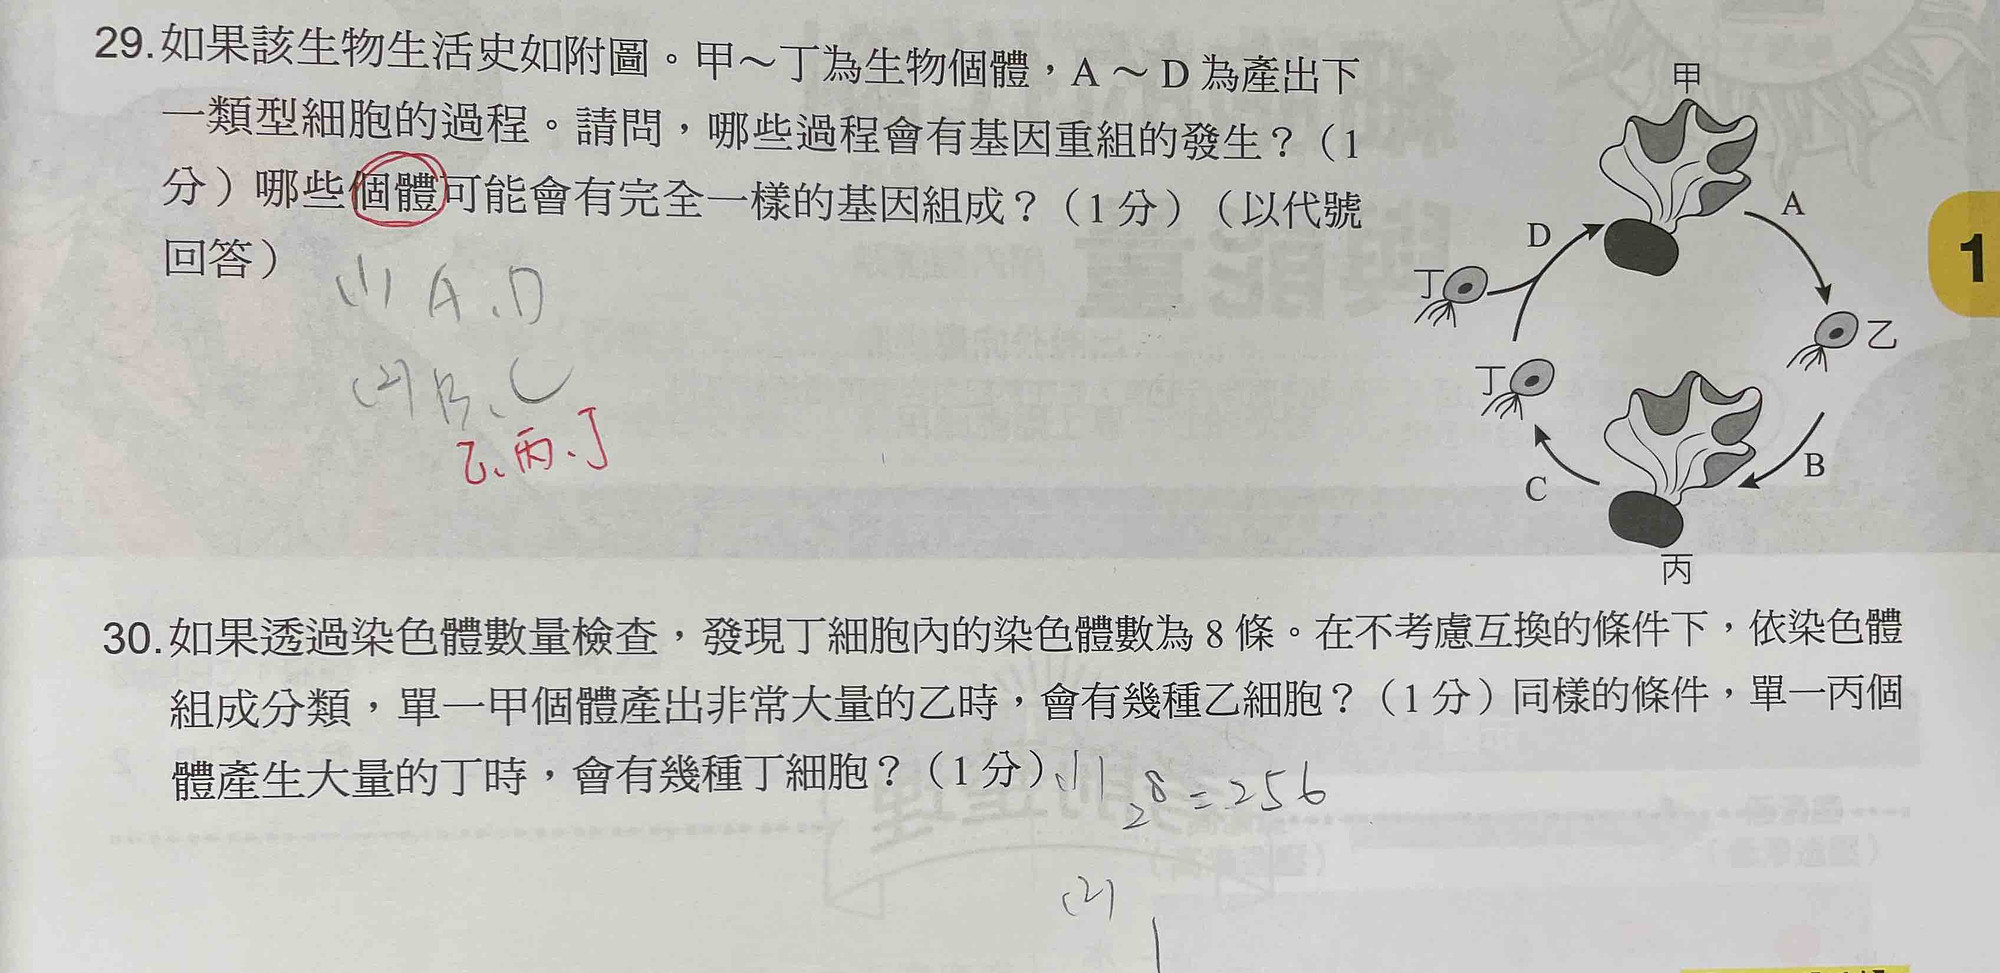 29.如果該生物生活史如附圖。甲～丁為生物個體，A～D為產出下
一類型細胞的過程。請問，哪些過程會有基因重組的發生？（1
分）哪些個體可能會有完全一樣的基因組成？（1分）（以代號
回答）
(1) A、D
(2) B、C
乙、丙、丁
甲
A
D
丁
乙
丁
B
C
丙
1
30.如果透過染色體數量檢查，發現丁細胞內的染色體數為8條。在不考慮互換的條件下，依染色體
組成分類，單一甲個體產出非常大量的乙時，會有幾種乙細胞？（1分）同樣的條件，單一丙個
體產生大量的丁時，會有幾種丁細胞？（1分）
(1) 2⁸=256
(2) 1